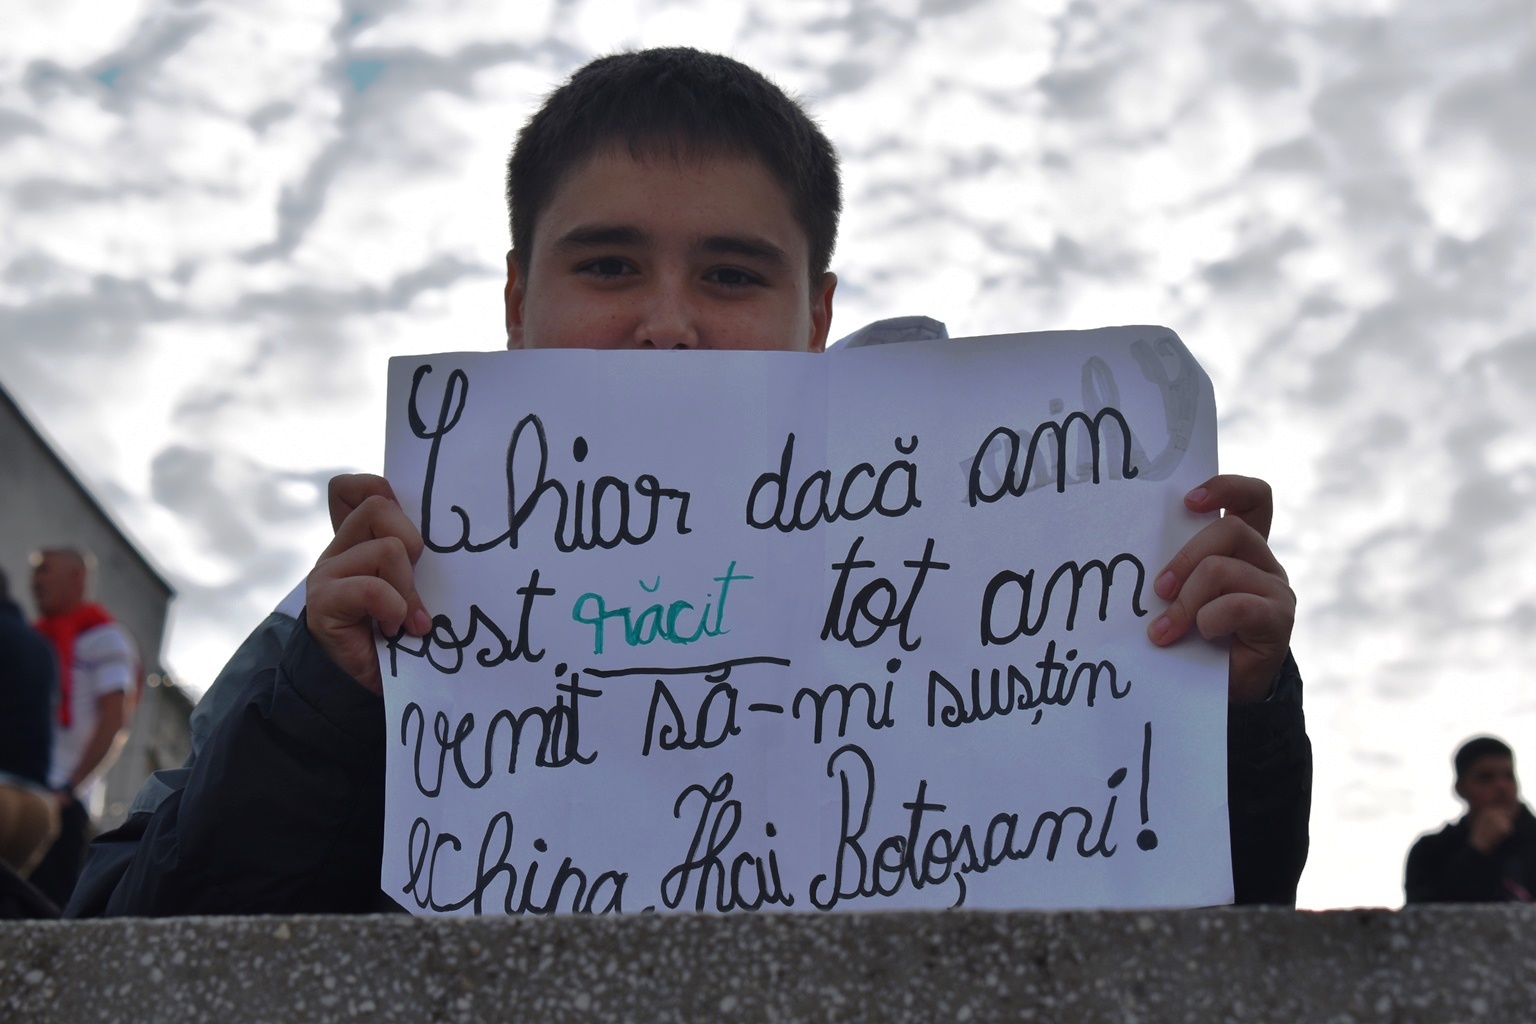 Chiar dacă am
fost răcit tot am
venit să-mi susțin
echipa. Hai Botoșani!